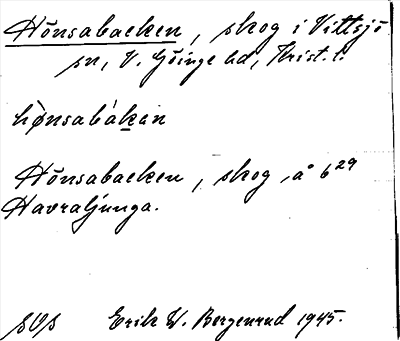 Hönsabacken, skog i Vittsjö
sn, V. Göinge hd, Krist. l.
hø̀nsabákan
Hönsabacken, skog, å 6²⁹
Havraljunga.
Erik W. Bergenrud 1945.